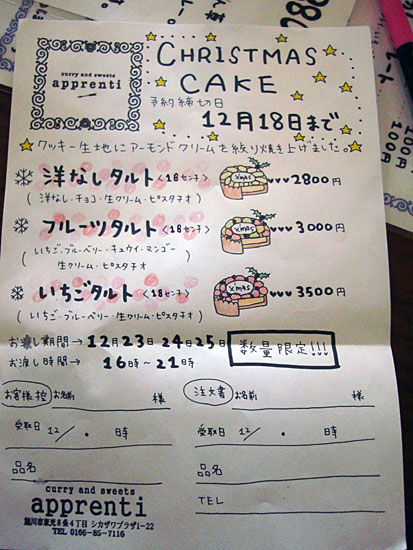 curry and sweets
apprenti
CHRISTMAS
CAKE
予約締切日
12月18日まで
クッキー生地にアーモンドクリームを絞り焼き上げました。
洋なしタルト <18センチ> xmas 2800円
(洋なし・チョコ・生クリーム・ピスタチオ)
フルーツタルト <18センチ> xmas 3000円
(いちご・ブルーベリー・キュウイ・マンゴー
生クリーム・ピスタチオ)
いちごタルト <18センチ> xmas 3500円
(いちご・ブルーベリー・生クリーム・ピスタチオ)
お渡し期間→12月23日 24日 25日
お渡し時間→16時〜21時
数量限定!!!
お客様控 お名前 様
受取日 12/ ・ 時
品名
curry and sweets
apprenti
旭川市東光8条4丁目 シカザワプラザ1-22
TEL 0166-85-7116
注文書 お名前 様
受取日 12/ ・ 時
品名
TEL